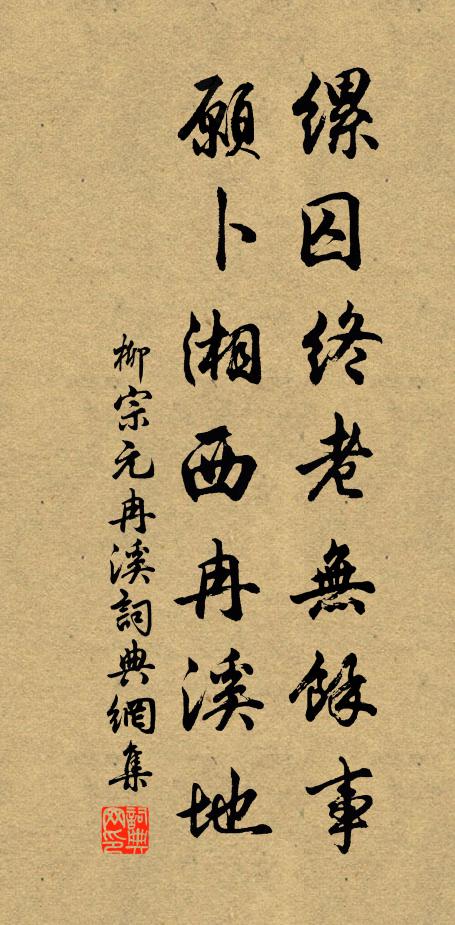 縲囚終老無餘事
願卜湘西冉溪地
柳宗元冉溪詞典網集
詞典网印